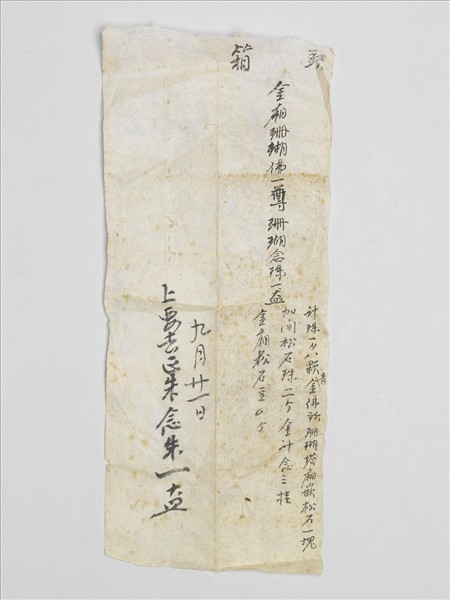 箱
金廂珊瑚佛一尊珊瑚念珠一盘
計珠一百八顆金佛頭珊瑚塔扁嵌松石一塊
加间松石珠二个金計念三挂
金廂松石豆个
九月廿一日
上要去正朱念朱一盘